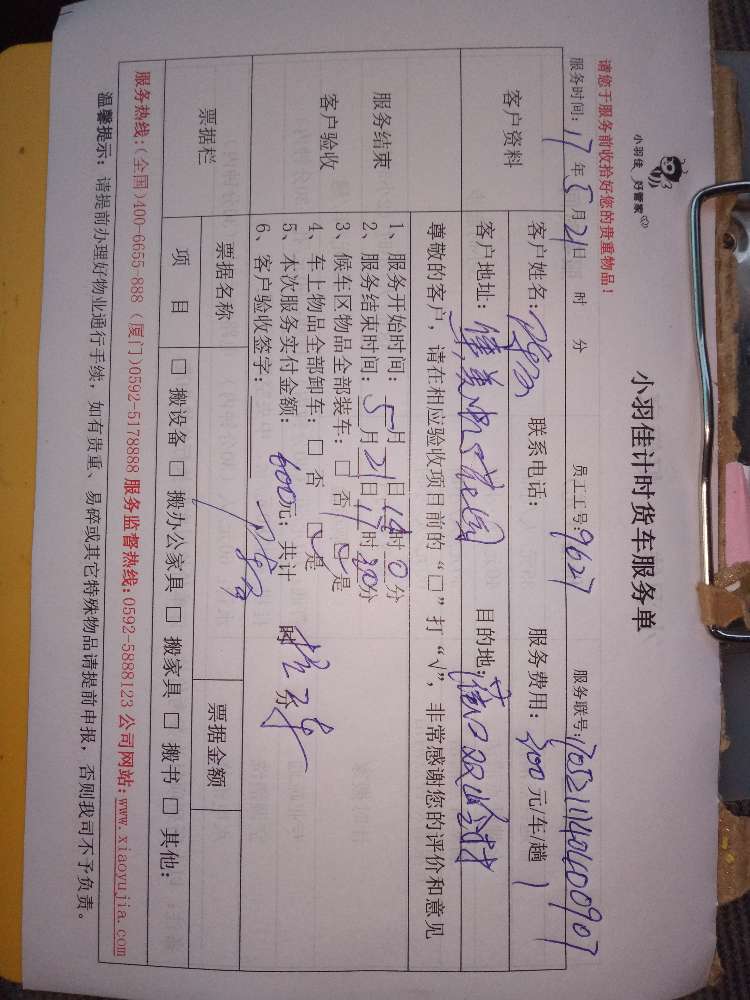 小羽佳 好管家
小羽佳计时货车服务单
请您于服务前收拾好您的贵重物品！
服务时间：17年5月21日 时 分 员工工号：9627 服务联号：
客户资料
客户姓名： 联系电话： 服务费用：300元/车/趟
客户地址： 目的地：
尊敬的客户，请在相应验收项目前的“□”打“√”，非常感谢您的评价和意见
服务结束
客户验收
1、服务开始时间： 月 日 时0分
2、服务结束时间：5月21日 时 分
3、候车区物品全部装车：□ 否 □ 是
4、车上物品全部卸车：□ 否 □ 是
5、本次服务实付金额：600元；共计 时 分
6、客户验收签字：
票据栏
票据名称 票据金额
项 目 □ 搬设备 □ 搬办公家具 □ 搬家具 □ 搬书 □ 其他：
服务热线：(全国)400-6655-888（厦门)0592-5178888 服务监督热线：0592-5888123 公司网站：www.xiaoyujia.com
温馨提示：请提前办理好物业通行手续，如有贵重、易碎或其它特殊物品请提前申报，否则我司不予负责。